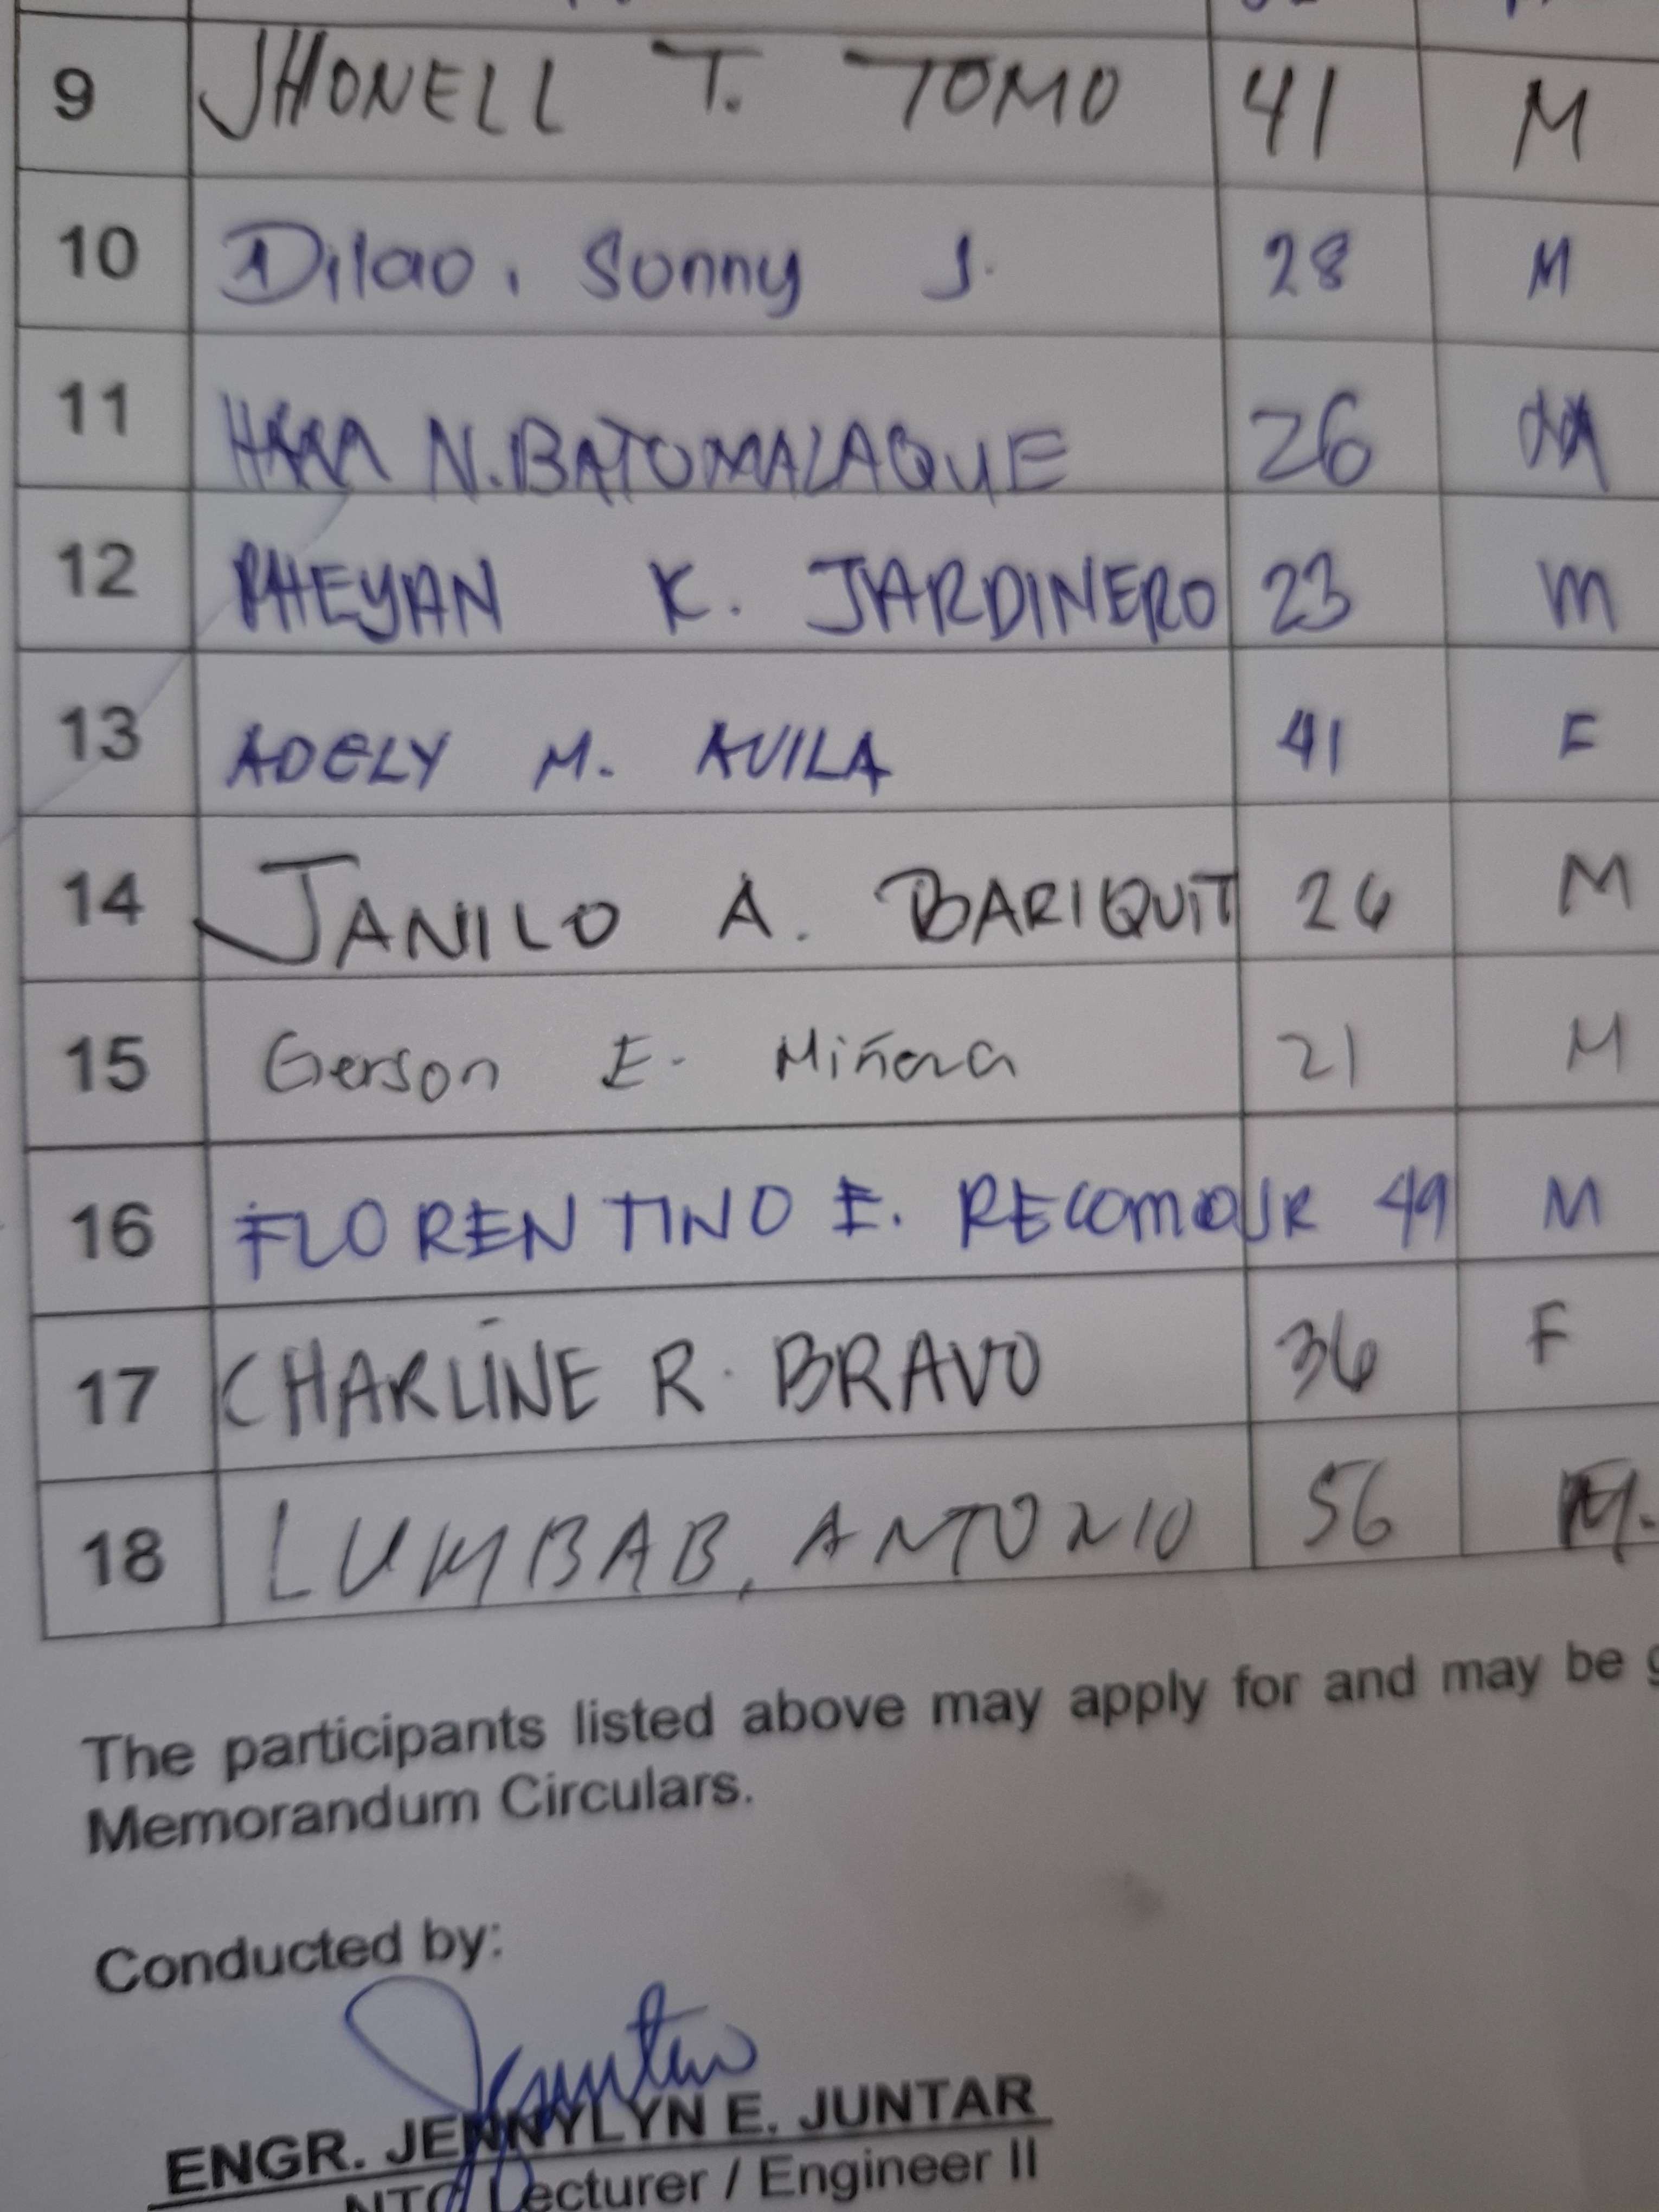 9 JHONELL T. TOMO 41 M
10 Dilao, Sonny J. 28 M
11 N. BATOMALAQUE 26
12 RHEYAN K. JARDINERO 23 M
13 ADELY M. AVILA 41 F
14 JANILO A. BARIQUIT 26 M
15 Gerson E. Miñoza 21 M
16 FLORENTINO E. RECOMO JR 49 M
17 CHARLINE R. BRAVO 36 F
18 LUMBAB, ANTONIO 56 M.
The participants listed above may apply for and may be
Memorandum Circulars.
Conducted by:
ENGR. JENNYLYN E. JUNTAR
NTC Lecturer / Engineer II